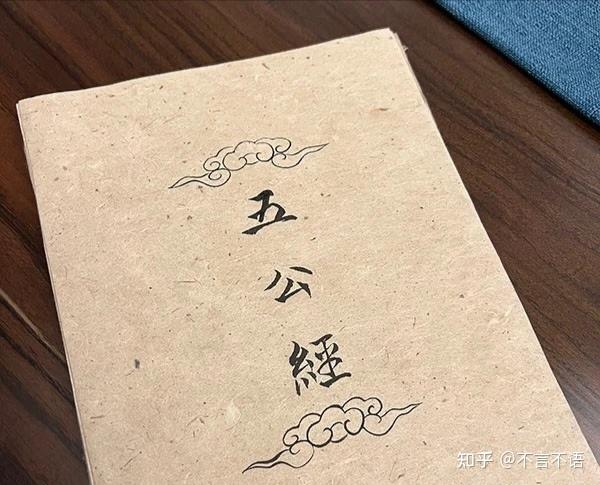 五公經
知乎 @不言不语